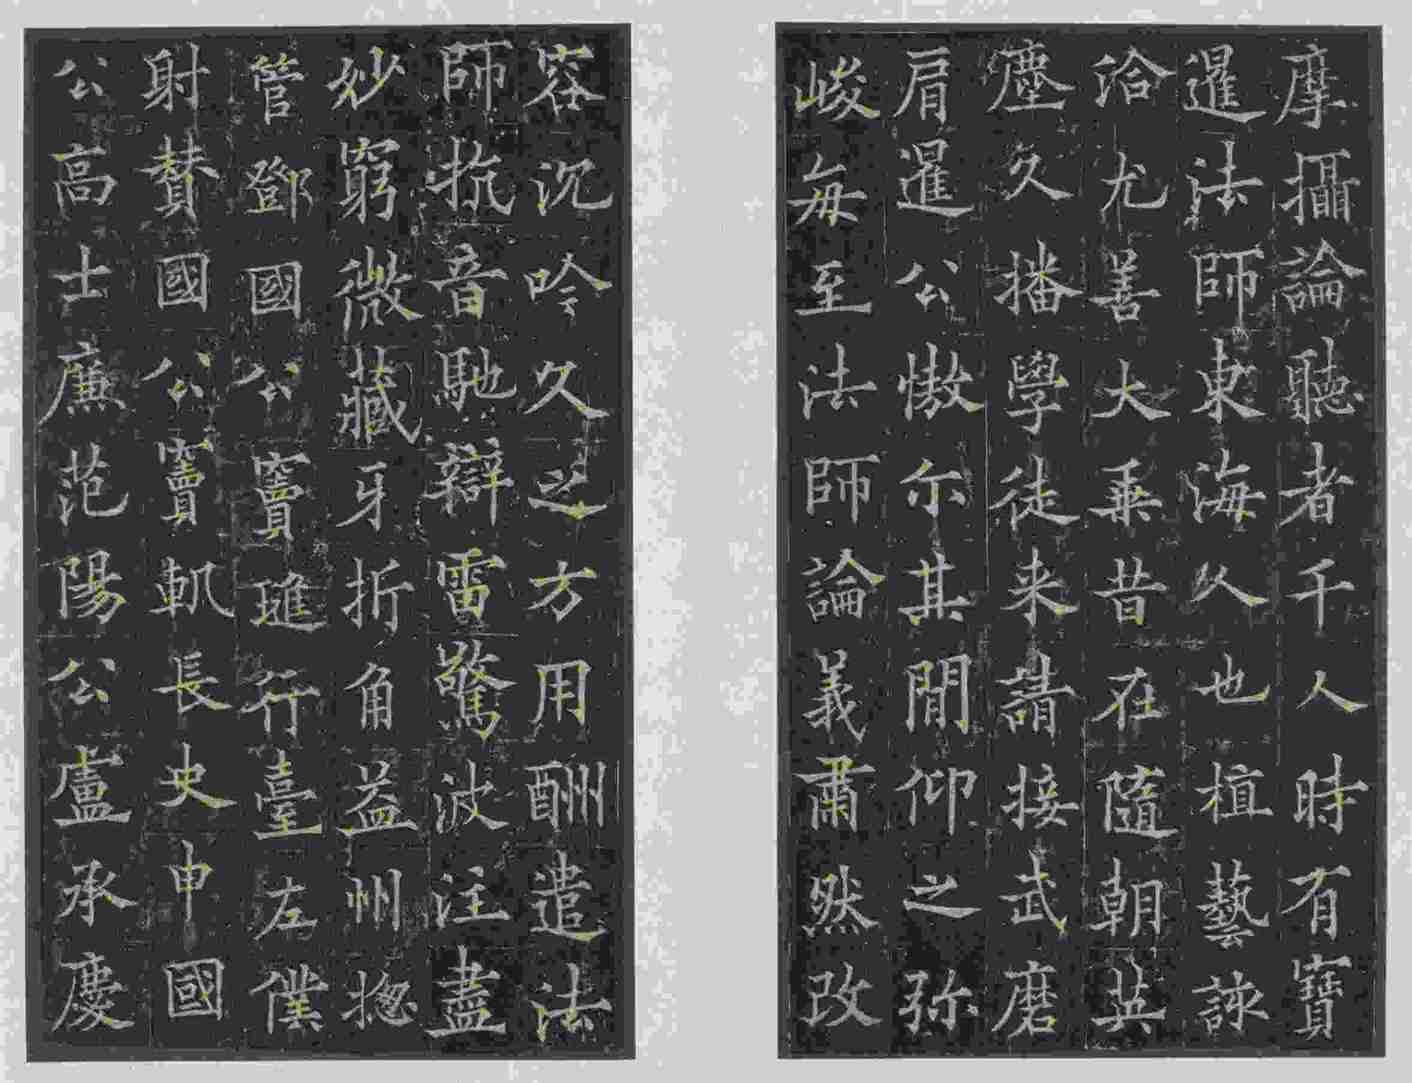 摩攝論聽者千人時有寶
暹法師東海人也植藝詠
洽尤善大乗昔在隨朝英
塵久播學徒来請接武磨
肩暹公慠尒其間仰之弥
峻每至法師論義肅然改
容沉吟久之方用酬遣法
師抗音馳辯雷驚波注盡
妙窮微藏牙折角益州揔
管鄧國公竇璡行臺左僕
射賛國公竇軌長史申國
公高士廉范陽公盧承慶